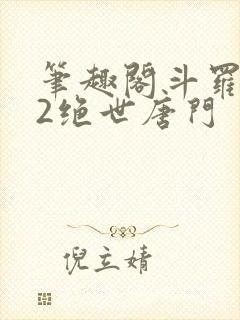 筆趣閣斗羅
2绝世唐門
倪立婧